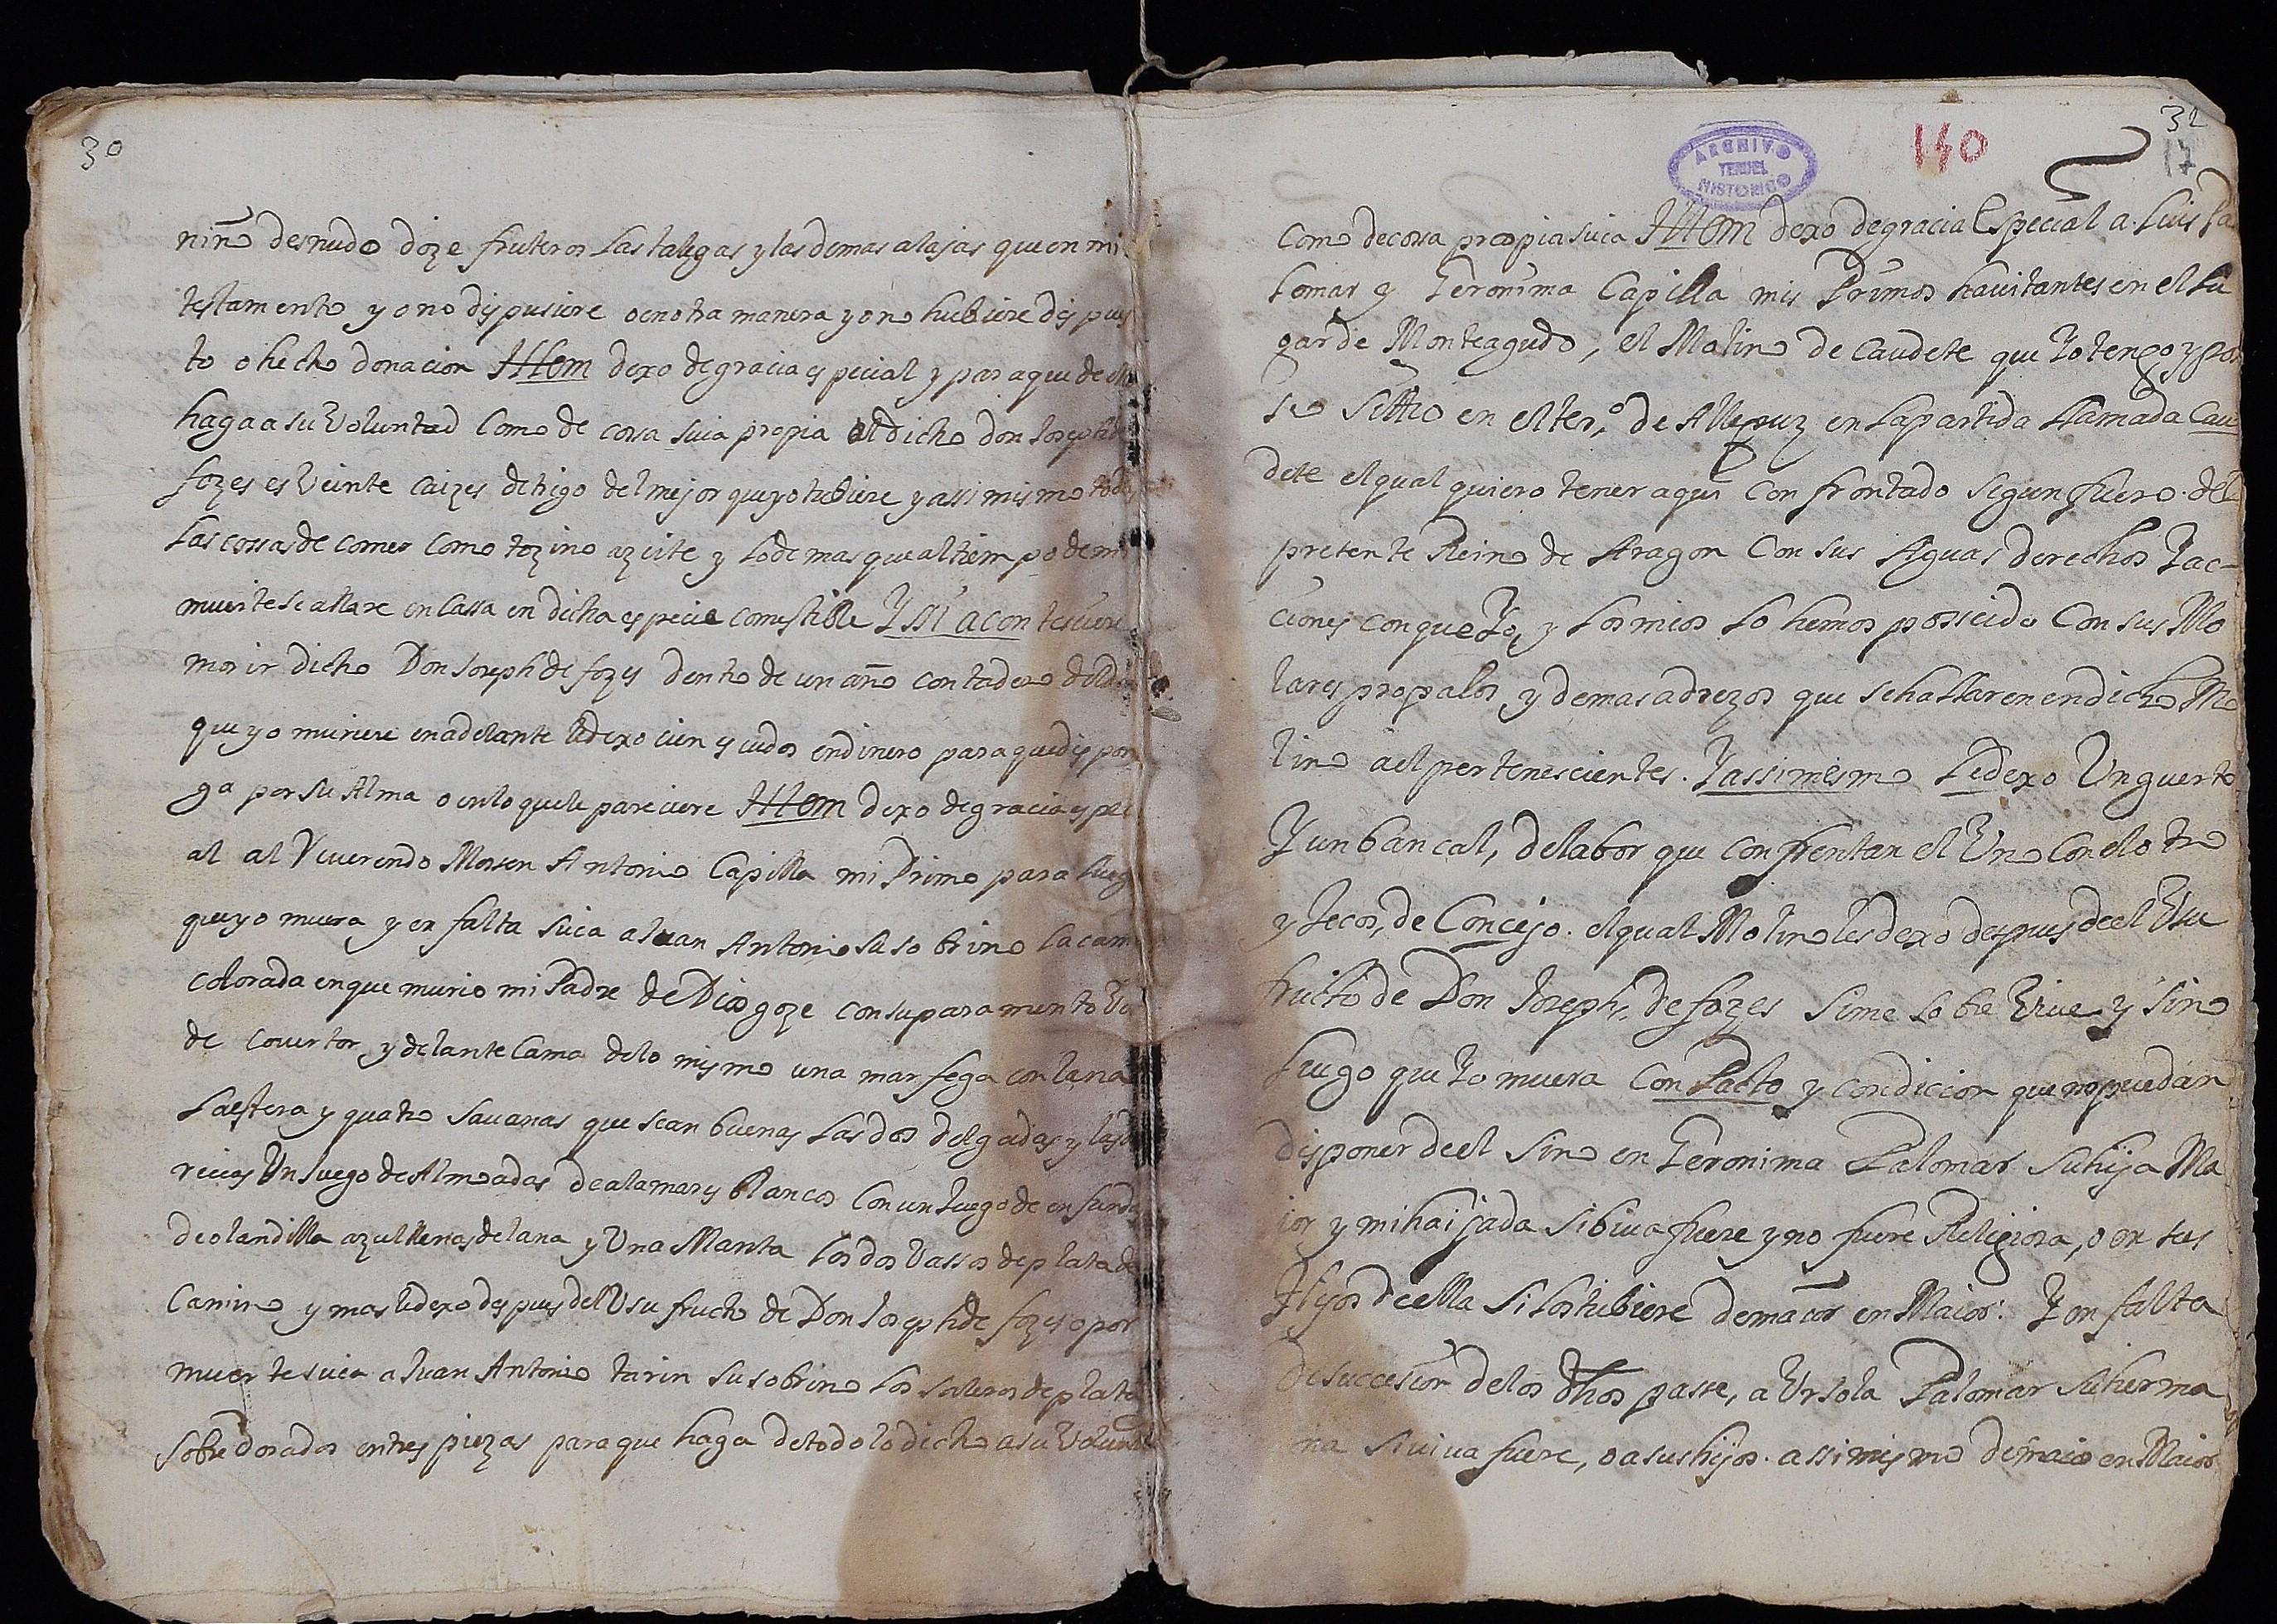 30
niño desnudo doze fruteros Las talegas y las demas alajas que en mi
testamento y o no dispusiere o en otra manera yo no hubiere dispues
to o hecho donacion Ittem dexo de gracia especial y para que de ello
haga a su Voluntad Como de cossa suia propia al dicho don Joseph de
fozes es Veinte caizes de trigo del mejor que yo tubiere y assi mismo todas
Las cossas de comer como tozino azeite y Lo demas que al tiempo de mi
muerte se allare en Cassa en dicha especie comestible Y si acontesciere
morir dicho Don Joseph de fozes dentro de un año contadero del dia
que yo muriere en adelante le dexo cien escudos en dinero para que dispon
ga por su Alma o en lo que le pareciere Ittem dexo de gracia especi
al al Reverendo Mossen Antonio Capilla mi Primo para Lueg
que yo muera y en falta suia a Juan Antonio su sobrino la cam
colorada en que murio mi Padre de Dios goze con su paramento Ro
de covertor y delante Cama de lo mismo una marfega con lana
La estera y quatro Savanas que sean buenas Las dos delgadas y las dos
recias Un Juego de Almoadas de alamares blancos Con un Juego de en fundas
de olandilla azul llenas de lana y Una Manta Los dos Vassos de plata de
Camino y mas le dexo despues del Usufructo de Don Joseph de fozes o por
muerte suia a Juan Antonio tarin su sobrino Los saleros de plata
sobre dorados en tres piezas para que haga de todo lo dicho a su Volunta
ARCHIVO
TERUEL
HISTORICO
140
32
17
Como de cossa propia suia Ittem dexo de gracia Especial a Luis Pa
Lomar y Geronima Capilla mis Primos havitantes en el Lu
gar de Monteagudo, el Molino de Caudete que Yo tengo y pos
seo Sittio en el ter.º de Allepuz en La partida Llamada Cau
dete el qual quiero tener aqui Confrontado Segun fuero del
presente Reino de Aragon Con sus Aguas derechos Y ac-
ciones con que Yo, y Los mios Lo hemos posseido Con sus Mo
lares propalos y demas adrezos que se hallaren en dicho Mo
lino a el pertenescientes. Y assimesmo Le dexo Un guerto
Y un bancal, de labor que confrentan el Uno con el otro
y Yecos, de Concejo. el qual Molino les dexo despues de el Usu
fructo de Don Joseph, de fozes Si me sobre Vive y sino
Luego que Yo muera Con Pacto y condicion que no puedan
disponer de el Sino en Geronima Palomar Su hija Ma
ior y mi haijada Si biva fuere y no fuere Religiosa, o en sus
Hijos de ella Si Los tubiere de maior en Maior: Y en falta
de succession de los dhos passe, a Ursola Palomar Su herma
na Si viva fuere, o a sus hijos assi mismo de maior en Maior